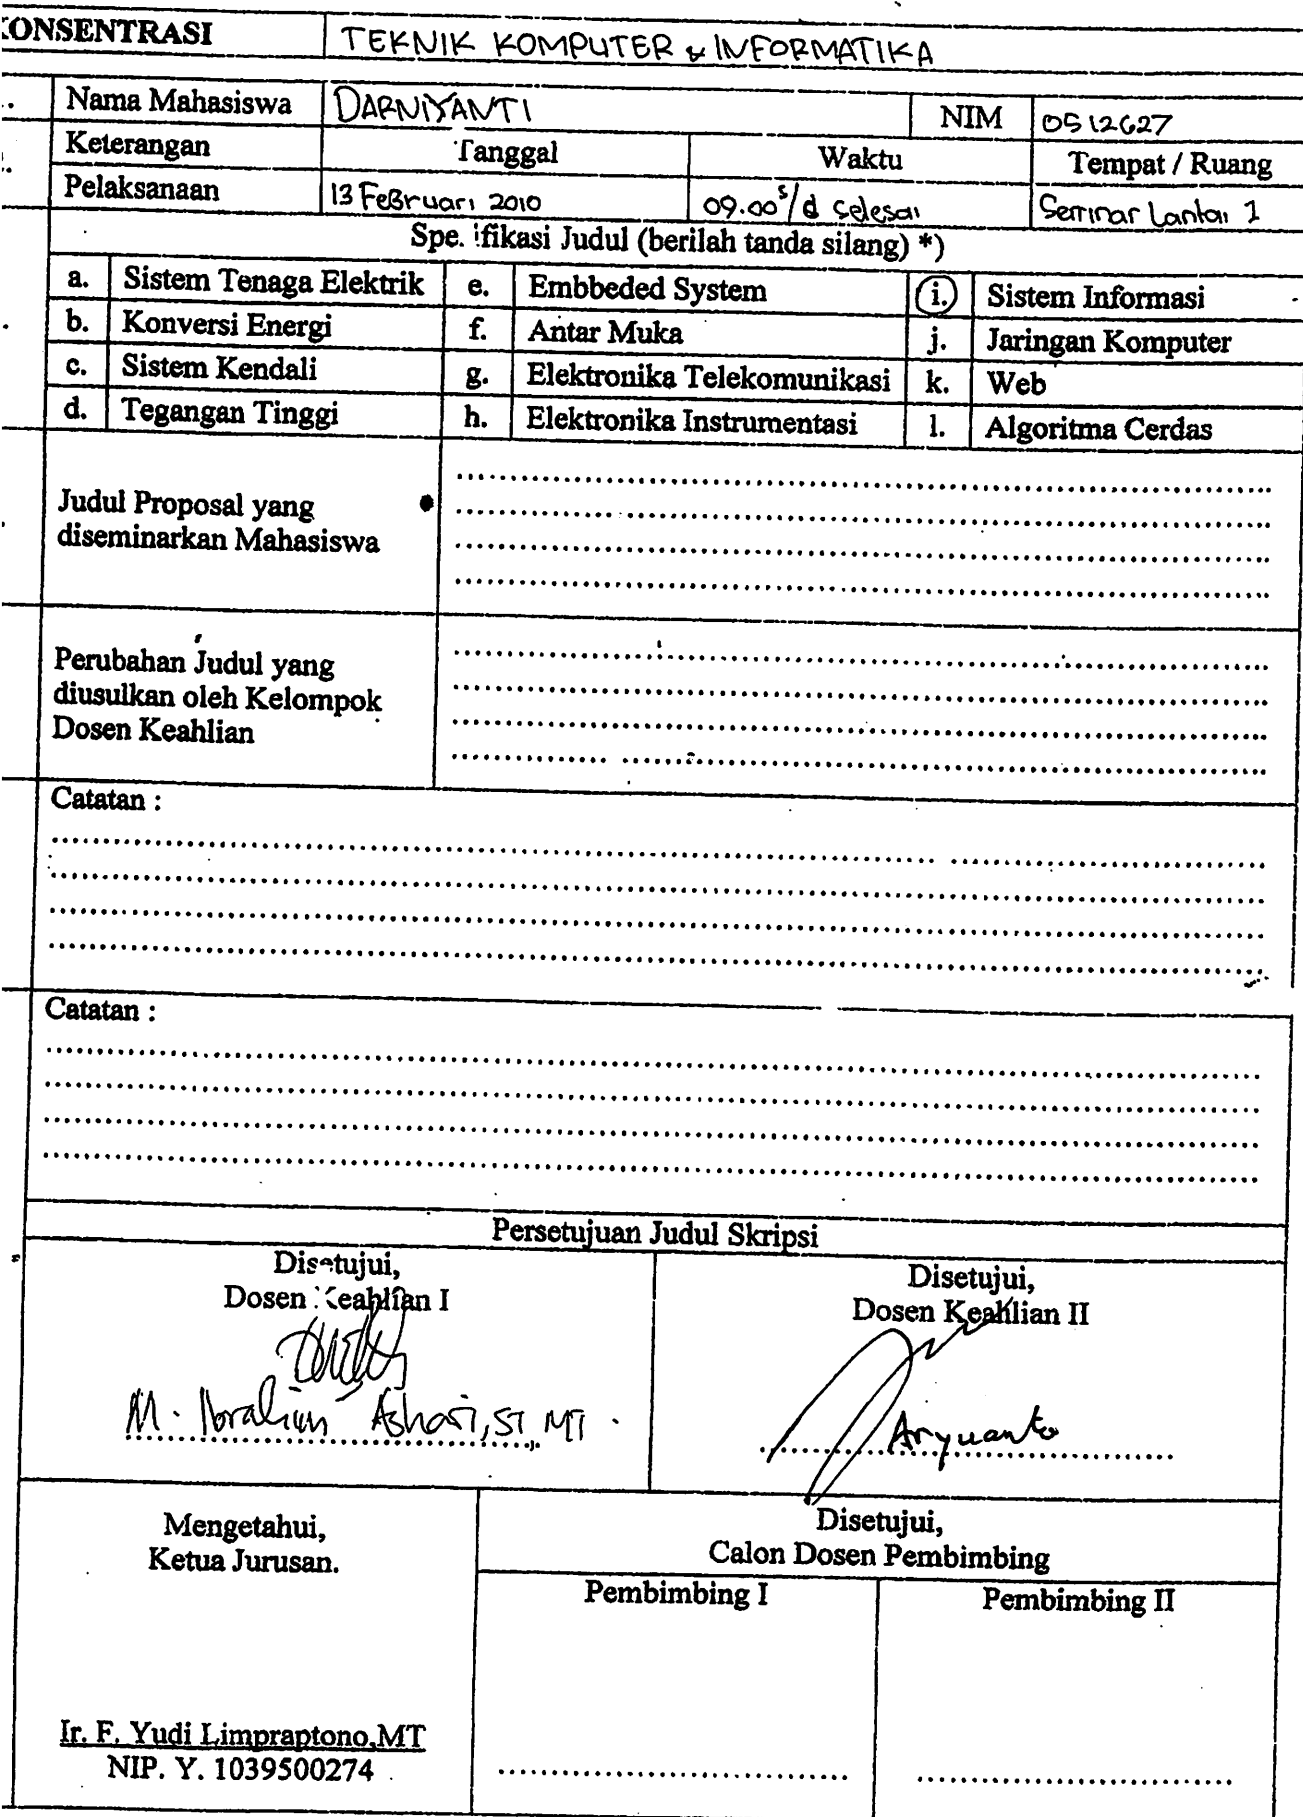 KONSENTRASI TEKNIK KOMPUTER & INFORMATIKA
Nama Mahasiswa DARNIYANTI NIM 0512627
Keterangan Tanggal Waktu Tempat / Ruang
Pelaksanaan 13 Februari 2010 09.00 s/d Selesai Seminar Lantai 1
Spesifikasi Judul (berilah tanda silang) *)
a. Sistem Tenaga Elektrik e. Embbeded System i. Sistem Informasi
b. Konversi Energi f. Antar Muka j. Jaringan Komputer
c. Sistem Kendali g. Elektronika Telekomunikasi k. Web
d. Tegangan Tinggi h. Elektronika Instrumentasi l. Algoritma Cerdas
Judul Proposal yang
diseminarkan Mahasiswa
Perubahan Judul yang
diusulkan oleh Kelompok
Dosen Keahlian
Catatan :
Catatan :
Persetujuan Judul Skripsi
Disetujui,
Dosen Keahlian I
M. Ibrahim Ashari, ST, MT
Disetujui,
Dosen Keahlian II
Aryuanto
Mengetahui,
Ketua Jurusan.
Ir. F. Yudi Limpraptono,MT
NIP. Y. 1039500274
Disetujui,
Calon Dosen Pembimbing
Pembimbing I Pembimbing II